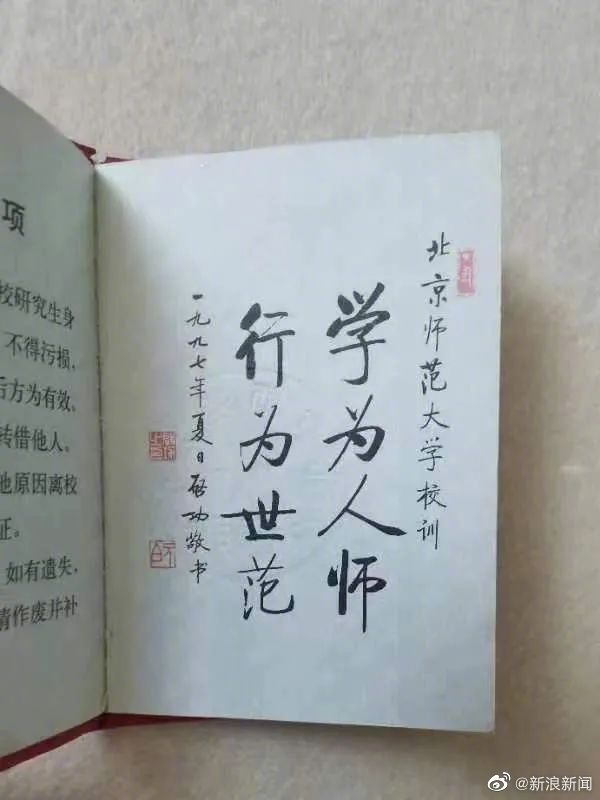 项
校研究生身
不得污损，
后方为有效。
转借他人。
他原因离校
证。
如有遗失，
请作废并补
北京师范大学校训
学为人师
行为世范
一九九七年夏日启功敬书
@新浪新闻